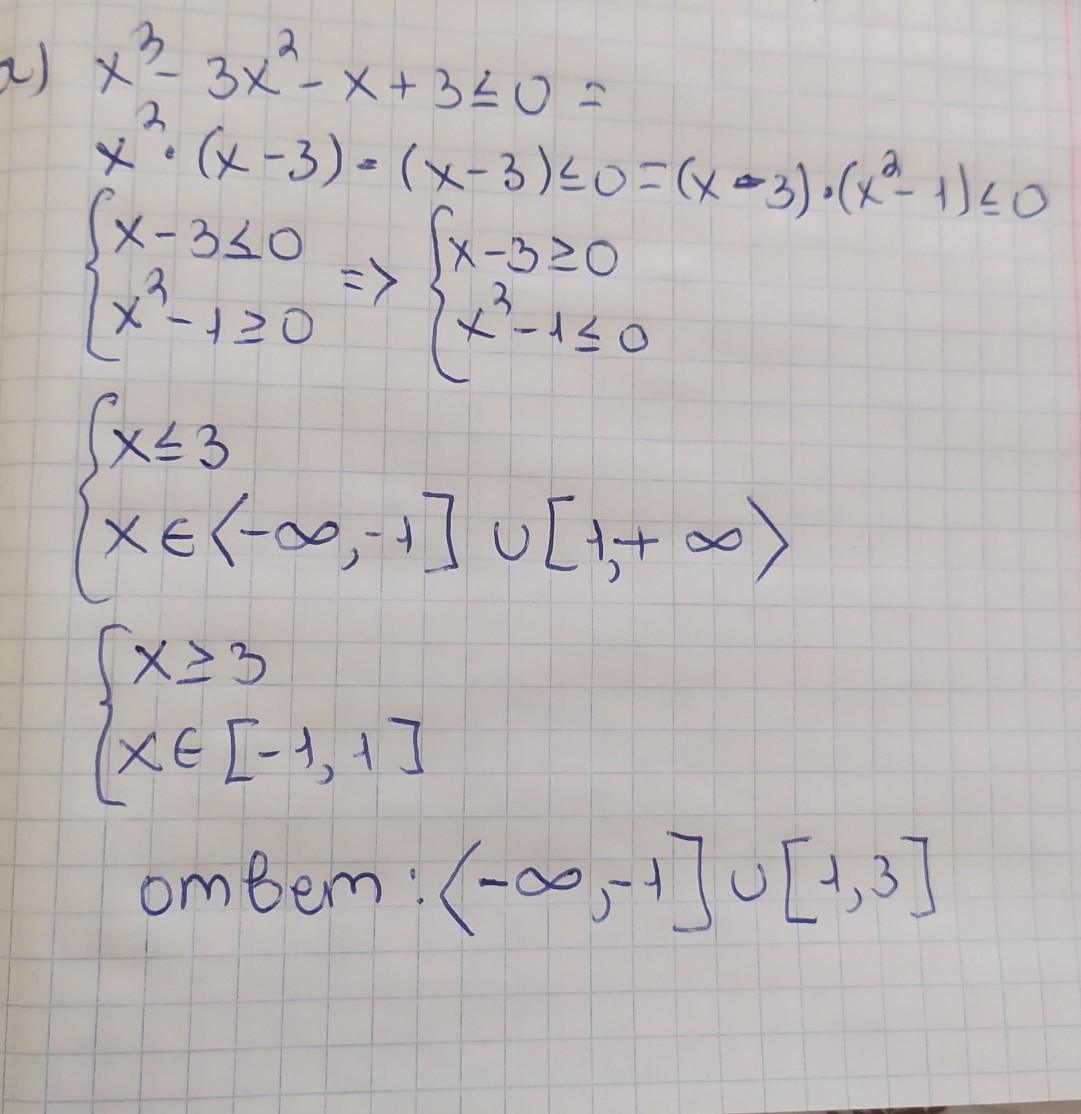 а) x³ - 3x² - x + 3 ≤ 0 =
x² · (x - 3) - (x - 3) ≤ 0 = (x - 3) · (x² - 1) ≤ 0
{ x - 3 ≤ 0 => { x - 3 ≥ 0
x² - 1 ≥ 0 x² - 1 ≤ 0
{ x ≤ 3
x ∈ ⟨-∞, -1] ∪ [1, + ∞⟩
{ x ≥ 3
x ∈ [-1, 1]
ответ: ⟨-∞, -1] ∪ [1, 3]